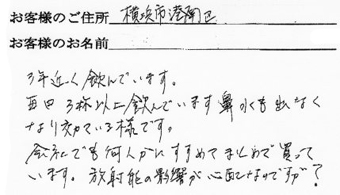 お客様のご住所 横浜市港南区
お客様のお名前
3年近く飲んでいます。
毎日 3杯以上飲んでいます 鼻水も出なく
なり効いている様です。
会社でも何人かにすすめてまとめて買って
います。放射能の影響が心配なのですが?